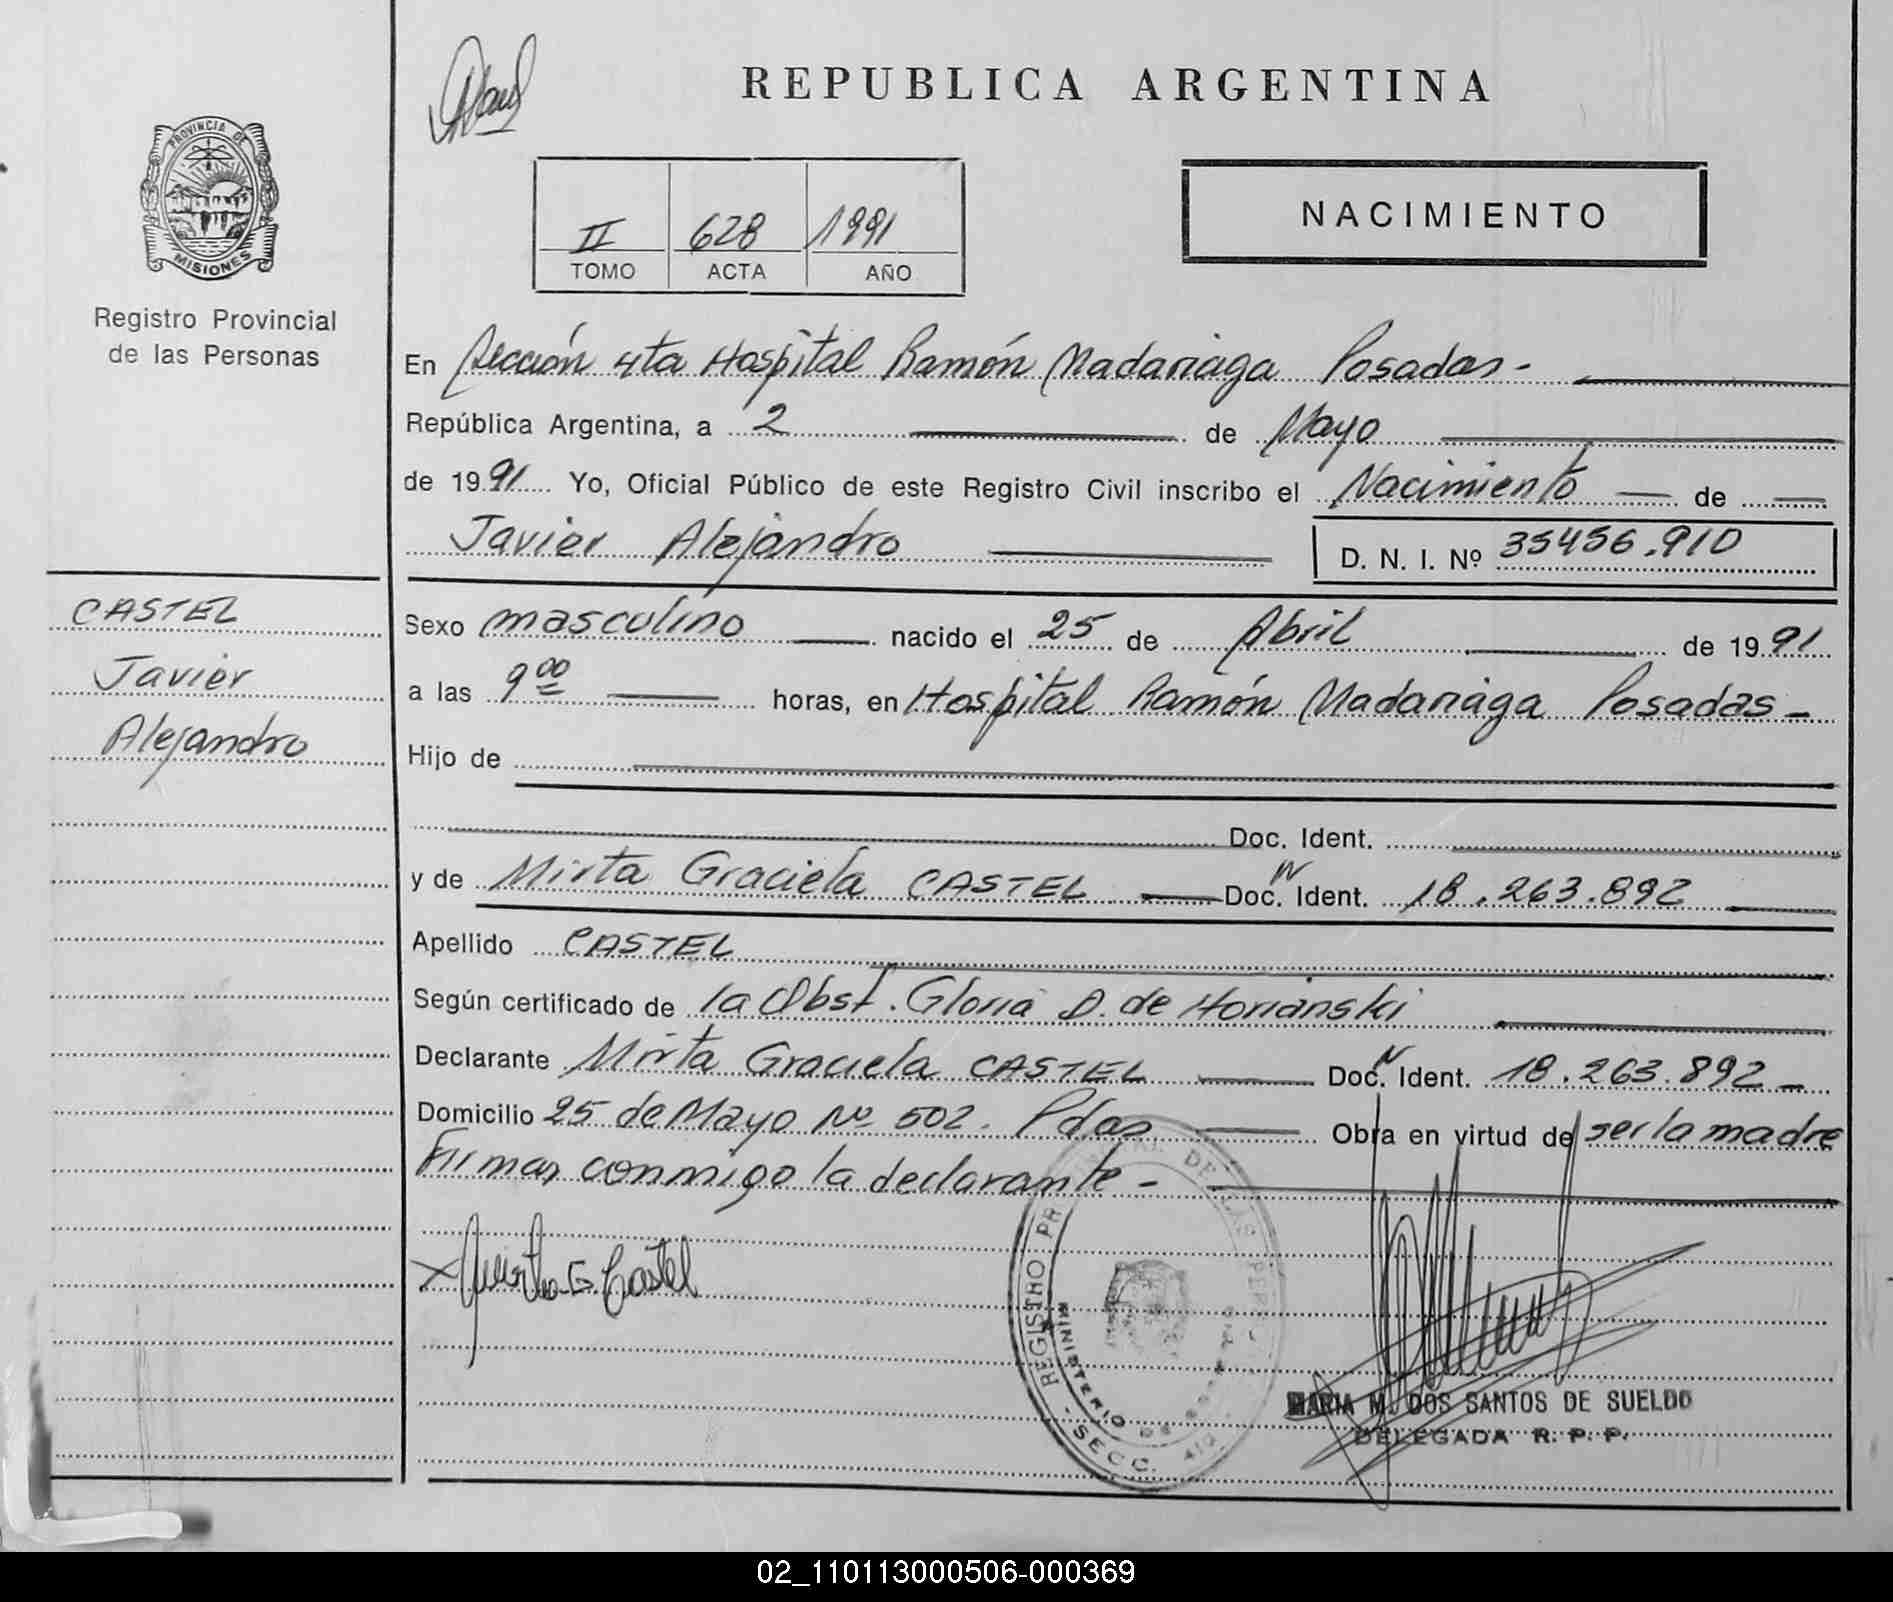 REPUBLICA ARGENTINA
PROVINCIA DE
MISIONES
Registro Provincial
de las Personas
II 628 1991
TOMO ACTA AÑO
NACIMIENTO
En Sección 4ta Hospital Ramón Madariaga Posadas -
República Argentina, a 2 de Mayo
de 1991 Yo, Oficial Público de este Registro Civil inscribo el Nacimiento de
Javier Alejandro
D. N. I. Nº 35456.910
CASTEL
Javier
Alejandro
Sexo masculino nacido el 25 de Abril de 1991
a las 9 00 horas, en Hospital Ramón Madariaga Posadas -
Hijo de
Doc. Ident.
y de Mirta Graciela CASTEL Doc. N Ident. 18.263.892
Apellido CASTEL
Según certificado de la Obst. Gloria D. de Horianski
Declarante Mirta Graciela CASTEL Doc. N Ident. 18.263.892 -
Domicilio 25 de Mayo Nº 502. Pdas Obra en virtud de ser la madre
Firman conmigo la declarante -
x Mirtha G. Castel
REGISTRO PROVINCIAL DE LAS PERS
MINISTERIO DE
- SECC. 4
MARIA M. DOS SANTOS DE SUELDO
DELEGADA R. P. P.
02_110113000506-000369